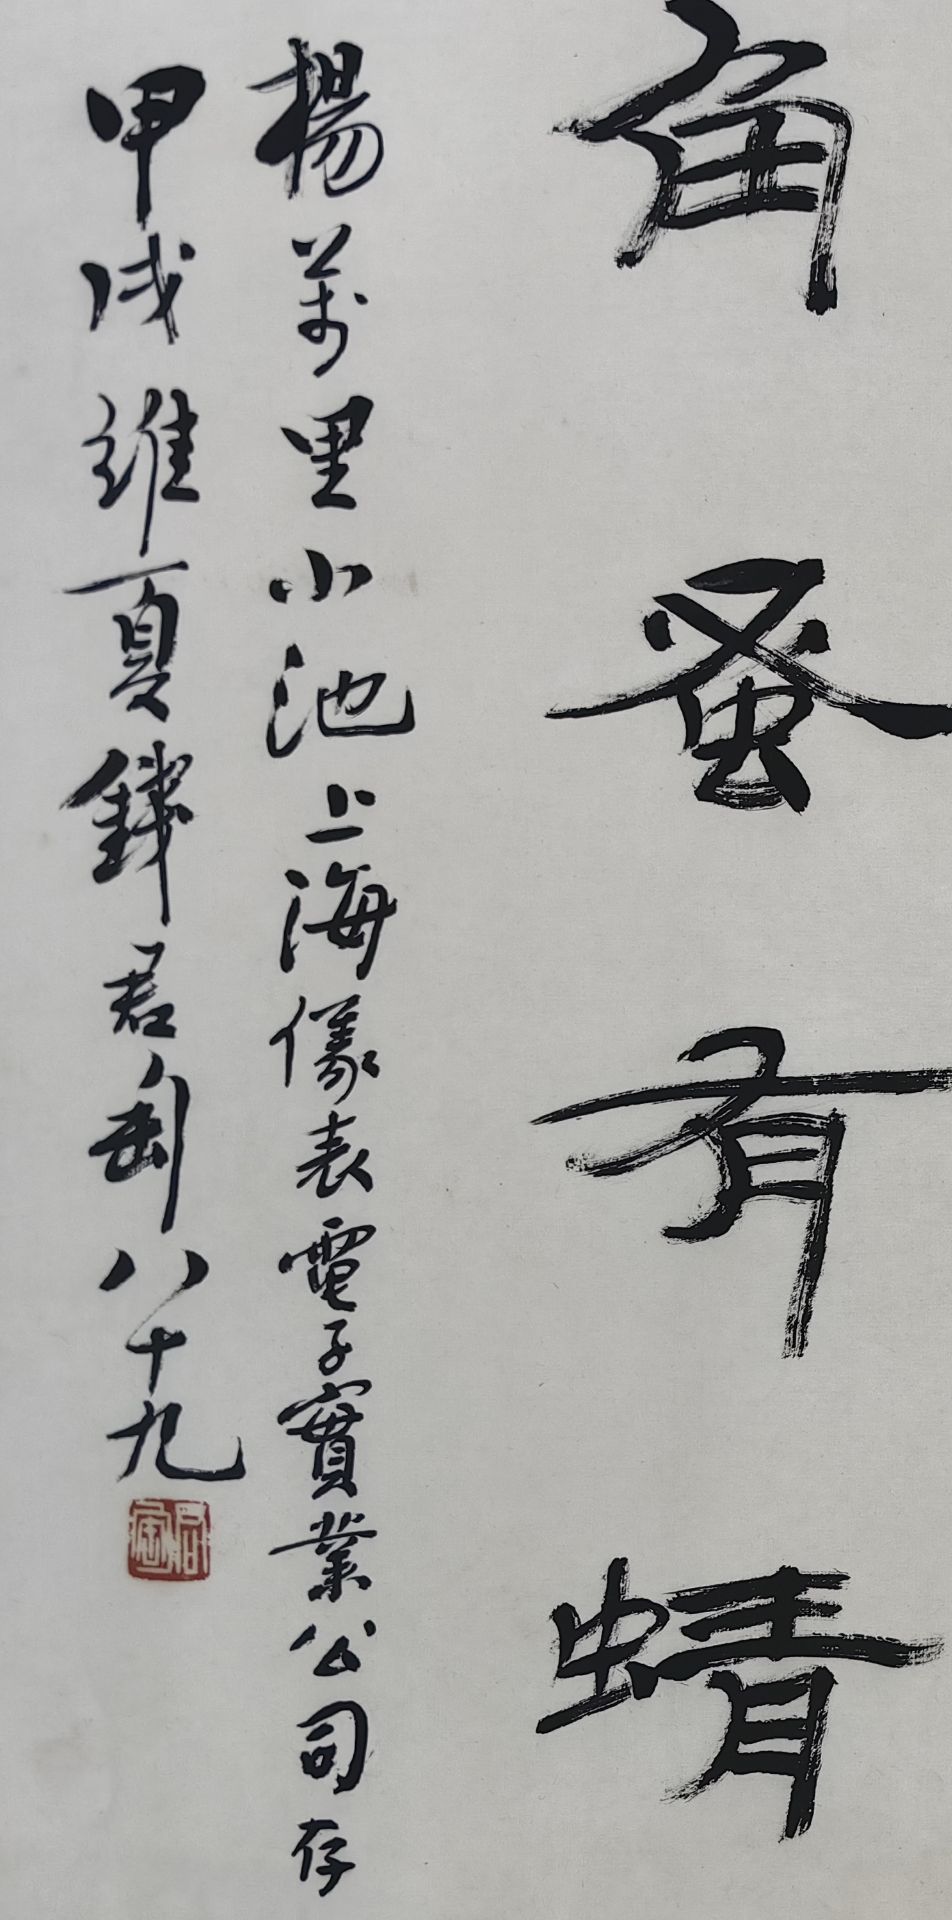 角蚤有蜻
楊萬里小池上海儀表電子實業公司存
甲戌維夏錢君匋八十九